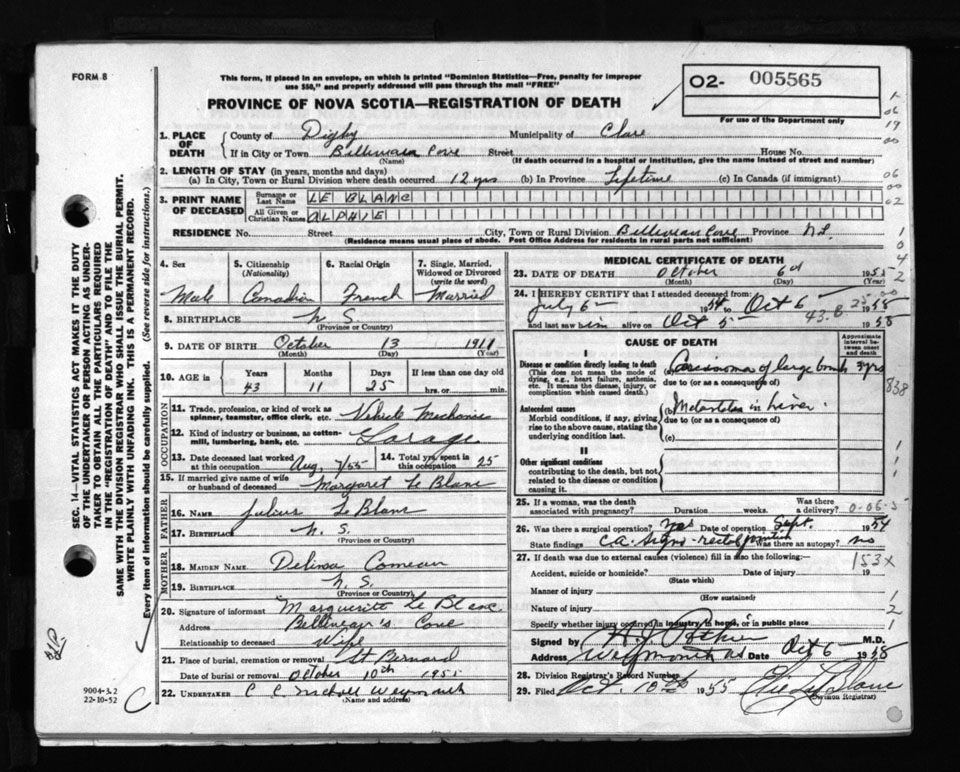 FORM 8
This form, if placed in an envelope, on which is printed "Dominion Statistics—Free, penalty for improper
use $50," and properly addressed will pass through the mail "FREE"
PROVINCE OF NOVA SCOTIA—REGISTRATION OF DEATH
02- 005565
For use of the Department only
1. PLACE OF DEATH
County of Digby Municipality of Clare
If in City or Town Belliveau Cove Street House No.
(Name) (If death occurred in a hospital or institution, give the name instead of street and number)
2. LENGTH OF STAY (in years, months and days)
(a) In City, Town or Rural Division where death occurred 12 yrs (b) In Province Lifetime (c) In Canada (if immigrant)
3. PRINT NAME OF DECEASED
Surname or Last Name LE BLANC
All Given or Christian Names ALPHIE
RESIDENCE No. Street City, Town or Rural Division Belliveau Cove Province N.S.
(Residence means usual place of abode. Post Office Address for residents in rural parts not sufficient)
4. Sex Male
5. Citizenship (Nationality) Canadian
6. Racial Origin French
7. Single, Married, Widowed or Divorced (write the word) Married
8. BIRTHPLACE N. S.
(Province or Country)
9. DATE OF BIRTH October 13 1911
(Month) (Day) (Year)
10. AGE in Years Months Days If less than one day
43 11 25 hrs. or min.
OCCUPATION
11. Trade, profession, or kind of work as spinner, teamster, office clerk, etc. Vehicle Mechanic
12. Kind of industry or business, as cotton-mill, lumbering, bank, etc. Garage
13. Date deceased last worked at this occupation Aug. 7/55
14. Total yrs. spent in this occupation 25
15. If married give name of wife or husband of deceased Margaret Le Blanc
FATHER
16. Name Julius Le Blanc
17. Birthplace N. S.
(Province or Country)
MOTHER
18. Maiden Name Comeau
19. Birthplace N. S.
(Province or Country)
20. Signature of informant Marguerite Le Blanc
Address Belliveau's Cove
Relationship to deceased Wife
21. Place of burial, cremation or removal St Bernard
Date of burial or removal October 10th 1955
22. UNDERTAKER C. C. Weymouth
(Name and address)
MEDICAL CERTIFICATE OF DEATH
23. DATE OF DEATH October 6th 1955
(Month) (Day) (Year)
24. I HEREBY CERTIFY that I attended deceased from
July 6 1954 to Oct 6 1955
and last saw him alive on Oct 5 1955
43.6
CAUSE OF DEATH
Approximate interval between onset and death
I
Disease or condition directly leading to death
(This does not mean the mode of dying, e.g., heart failure, asthenia, etc. It means the disease, injury, or complication which caused death.)
(a) Carcinoma of large bowel yrs
due to (or as a consequence of)
Antecedent causes
Morbid conditions, if any, giving rise to the above cause, stating the underlying condition last.
(b) Metastates in Liver.
due to (or as a consequence of)
(c)
II
Other significant conditions
contributing to the death, but not related to the disease or condition causing it.
838
25. If a woman, was the death associated with pregnancy? Duration weeks. Was there a delivery?
26. Was there a surgical operation? Yes Date of operation Sept. 1954
State findings Was there an autopsy? no
27. If death was due to external causes (violence) fill in also the following:—
Accident, suicide or homicide? Date of injury 19
(State which)
153x
Manner of injury
(How sustained)
Nature of injury
Specify whether injury occurred in industry, in home, or in public place
Signed by M.D.
Address Weymouth NS Date Oct 6 1955
28. Division Registrar's Record Number
29. Filed Oct. 10th 1955 LeBlanc
(Division Registrar)
SEC. 14—VITAL STATISTICS ACT MAKES IT THE DUTY
OF THE UNDERTAKER OR PERSON ACTING AS UNDER-
TAKER TO OBTAIN ALL THE PARTICULARS REQUIRED
IN THE "REGISTRATION OF DEATH" AND TO FILE THE
SAME WITH THE DIVISION REGISTRAR WHO SHALL ISSUE THE BURIAL PERMIT.
WRITE PLAINLY WITH UNFADING INK. THIS IS A PERMANENT RECORD.
Every item of information should be carefully supplied. (See reverse side for instructions.)
9004-3.2
22-10-52
C